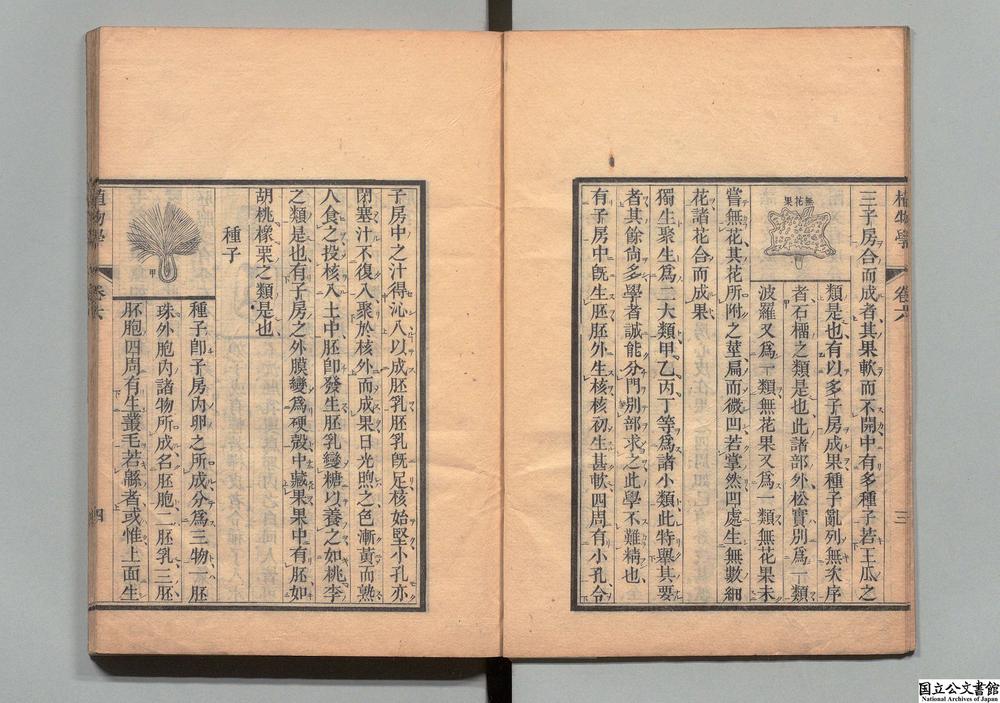 植物學 卷六 三
三子房合而成者其果軟而不開中有多種子若王瓜之
無花果
類是也有以多子房成果種子亂列無次序
者石榴之類是也此諸部外松實別爲一類
波羅又爲一類無花果又爲一類無花果未
嘗無花其花所附之莖扁而微凹若掌然凹處生無數細
花諸花合而成果
獨生聚生爲二大類甲乙丙丁等爲諸小類此特舉其要
者其餘尙多學者誠能分門別部求之此學不難精也
有子房中旣生胚胚外生核核初生甚軟四周有小孔令
子房中之汁得沁入以成胚乳胚乳旣足核始堅小孔亦
閉塞汁不復入聚於核外而成果日光煦之色漸黃而熟
人食之投核入土中胚卽發生胚乳變糖以養之如桃李
之類是也有子房之外膜變爲硬殼中藏果果中有胚如
胡桃橡栗之類是也
種子
種子卽子房內卵之所成分爲三物一胚
珠外胞內諸物所成名胚胞二胚乳三胚
胚胞四周有生叢毛若緜者或惟上面生
甲
植物學 卷六 四
国立公文書館
National Archives of Japan